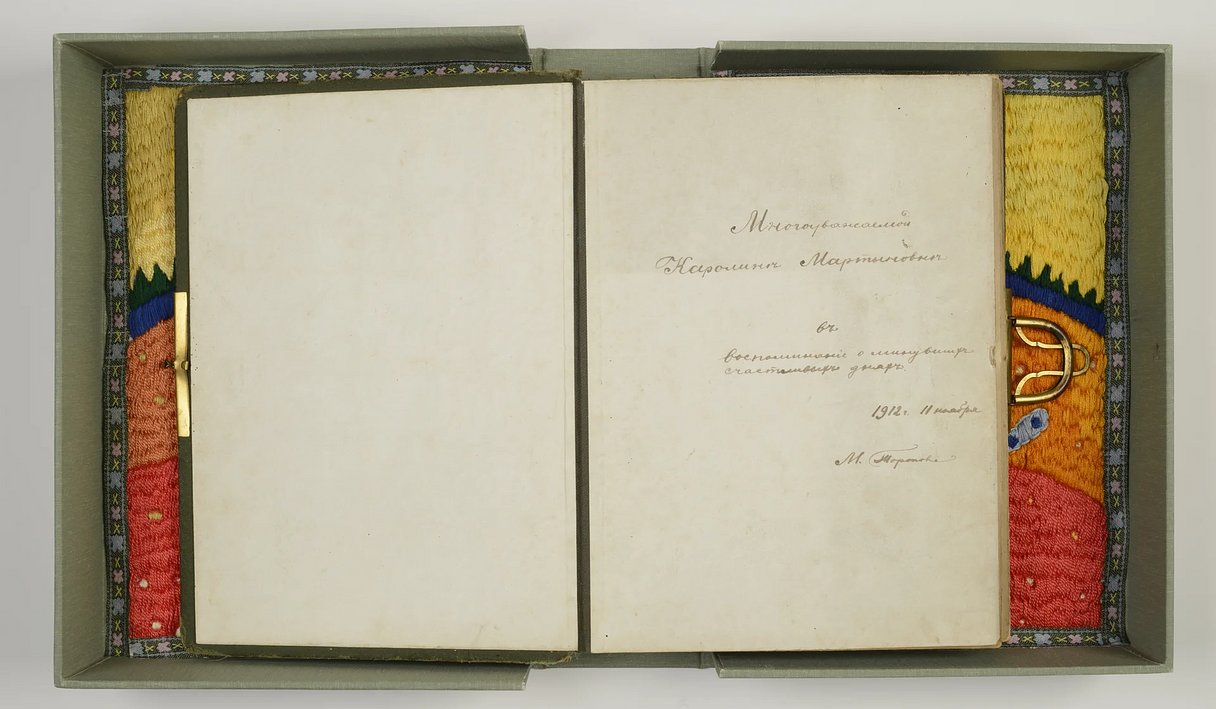 Многоуважаемой
Каролинѣ Мартыновнѣ
въ
воспоминаніе о минувшихъ
счастливыхъ дняхъ.
1912 г. 11 ноября
М. Торопова